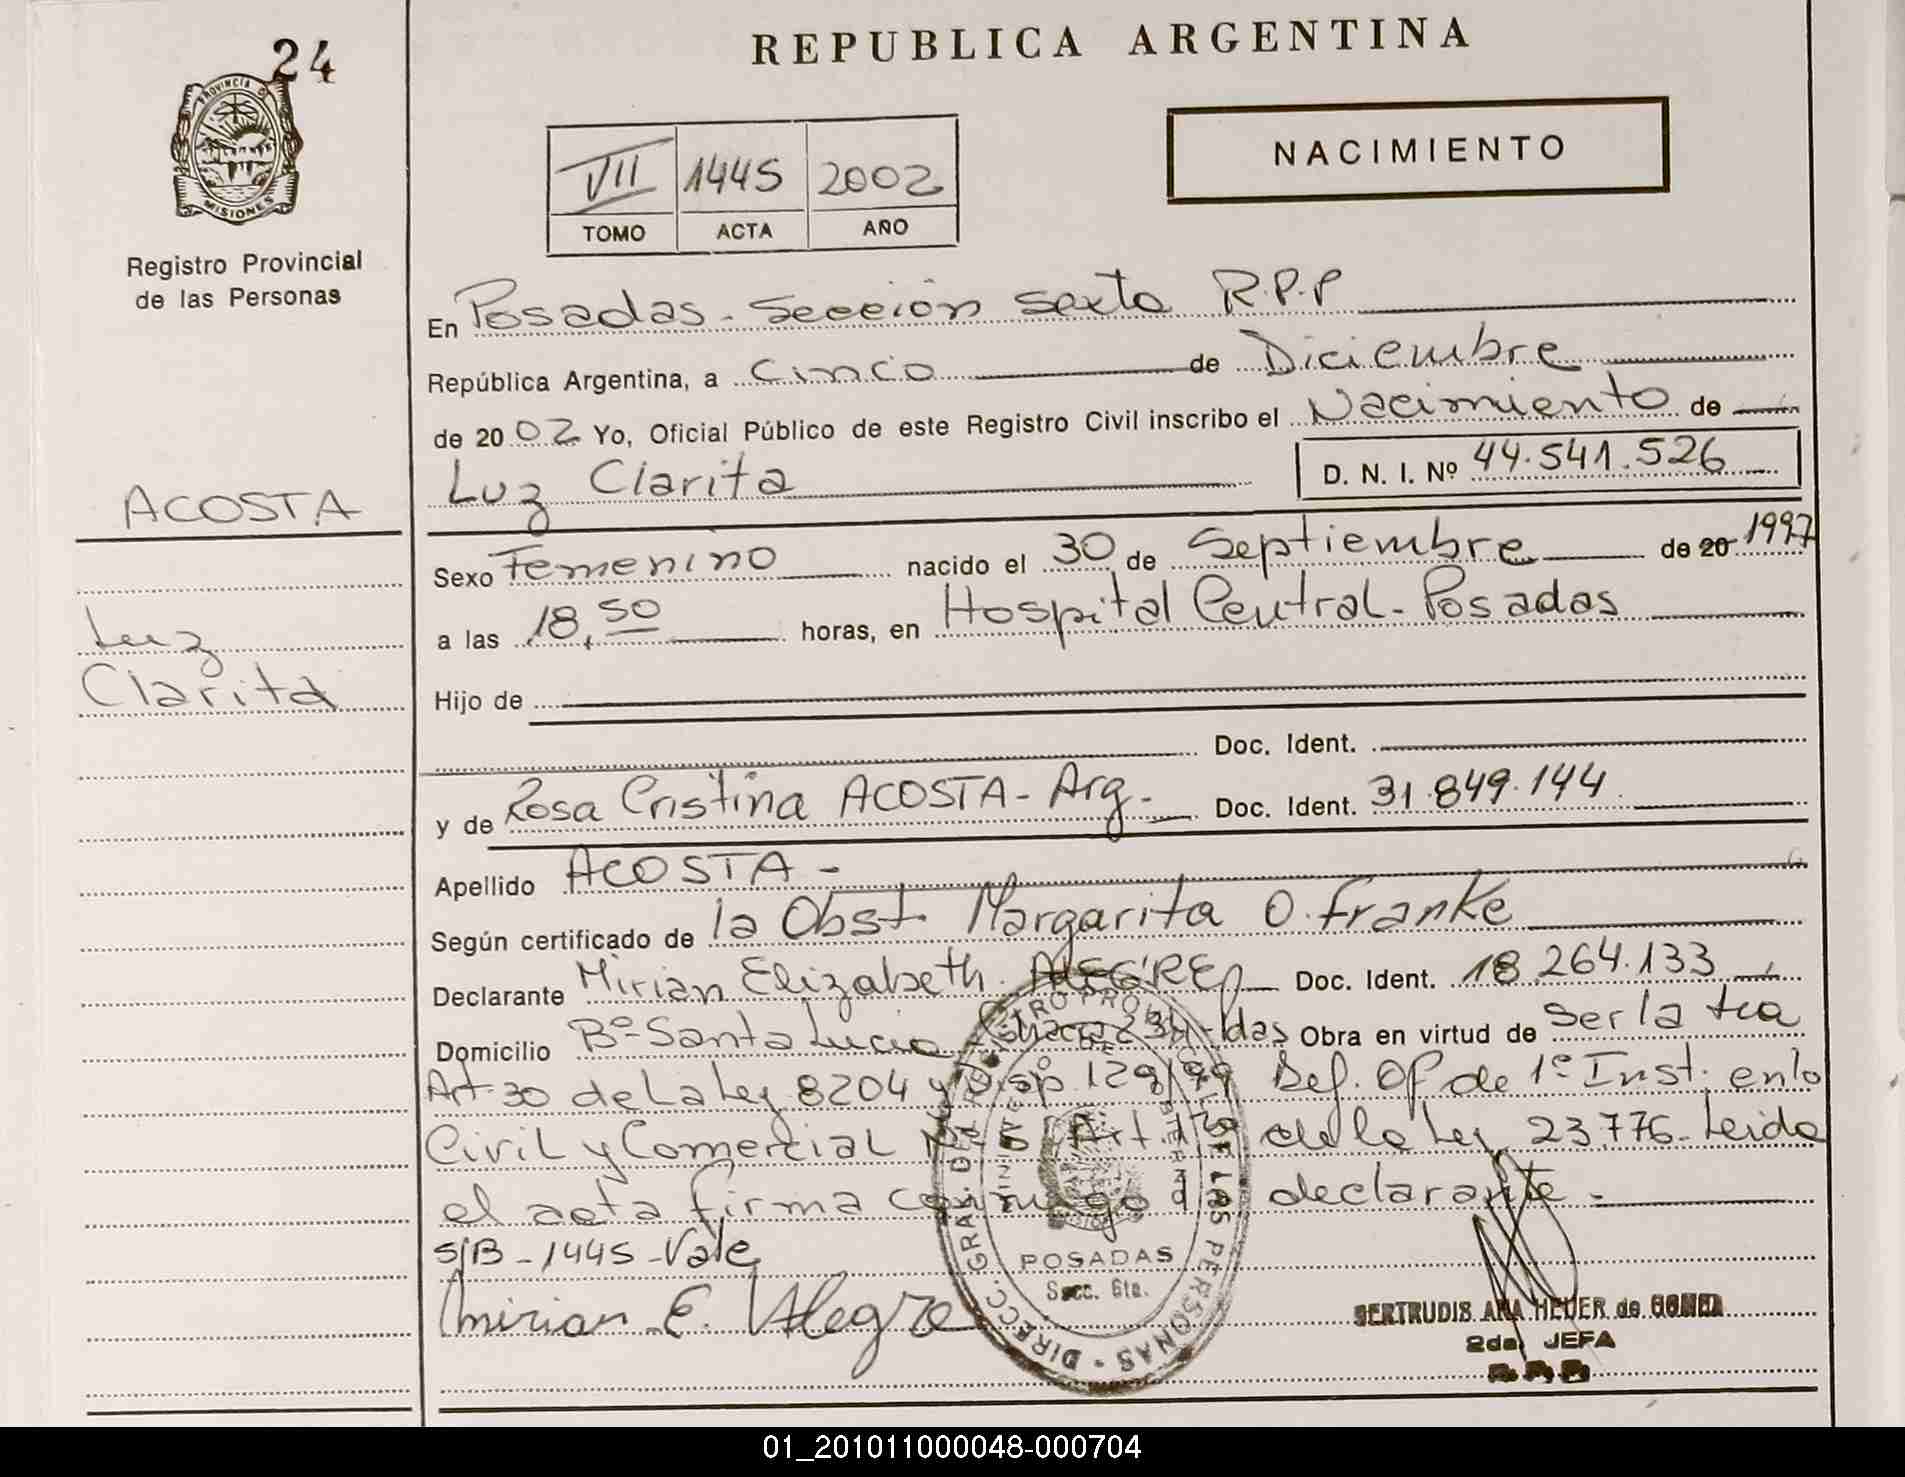 24
REPUBLICA ARGENTINA
PROVINCIA D
MISIONES
Registro Provincial
de las Personas
VII 1445 2002
TOMO ACTA AÑO
NACIMIENTO
En Posadas - Sección Sexta R.P.P
República Argentina, a Cinco de Diciembre
de 20 02 Yo, Oficial Público de este Registro Civil inscribo el Nacimiento de
Luz Clarita D. N. I. Nº 44.541.526
ACOSTA
Luz
Clarita
Sexo Femenino nacido el 30 de Septiembre de 20 1997
a las 18,50 horas, en Hospital Central - Posadas
Hijo de
Doc. Ident.
y de Rosa Cristina ACOSTA - Arg - Doc. Ident. 31.849.144
Apellido ACOSTA -
Según certificado de la Obst. Margarita O. Franke
Declarante Mirian Elizabeth ALEGRE Doc. Ident. 18.264.133
Domicilio Bº Santa Lucia Chacra - das Obra en virtud de Ser la tia
Art 30 de La Ley 8204 y Disp 129/99 Def. Of de 1º Inst. en lo
Civil y Comercial Art. de la Ley 23.776 - Leida
el acta firma conmigo la declarante -
S/B - 1445 - Vale
Mirian E. Alegre
DIRECC. GRAL. DEL REGISTRO PROVINCIAL DE LAS PERSONAS
POSADAS
Secc. 6ta.
GERTRUDIS ANA HEUER de
2da. JEFA
R.P.P.
01_201011000048-000704